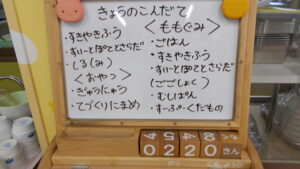 きょうのこんだて
・すきやきふう
・すいーとぽてとさらだ
・しるし(み)
<おやつ>
・ぎゅうにゅう
・てづくりにまめ
<ももぐみ>
・ごはん
・すきやきふう
・すいーとぽてとさらだ
(ごごしょく)
・むしぱん
・すーぷ・くだもの
4 5 4 8
0 2 2 0 きん